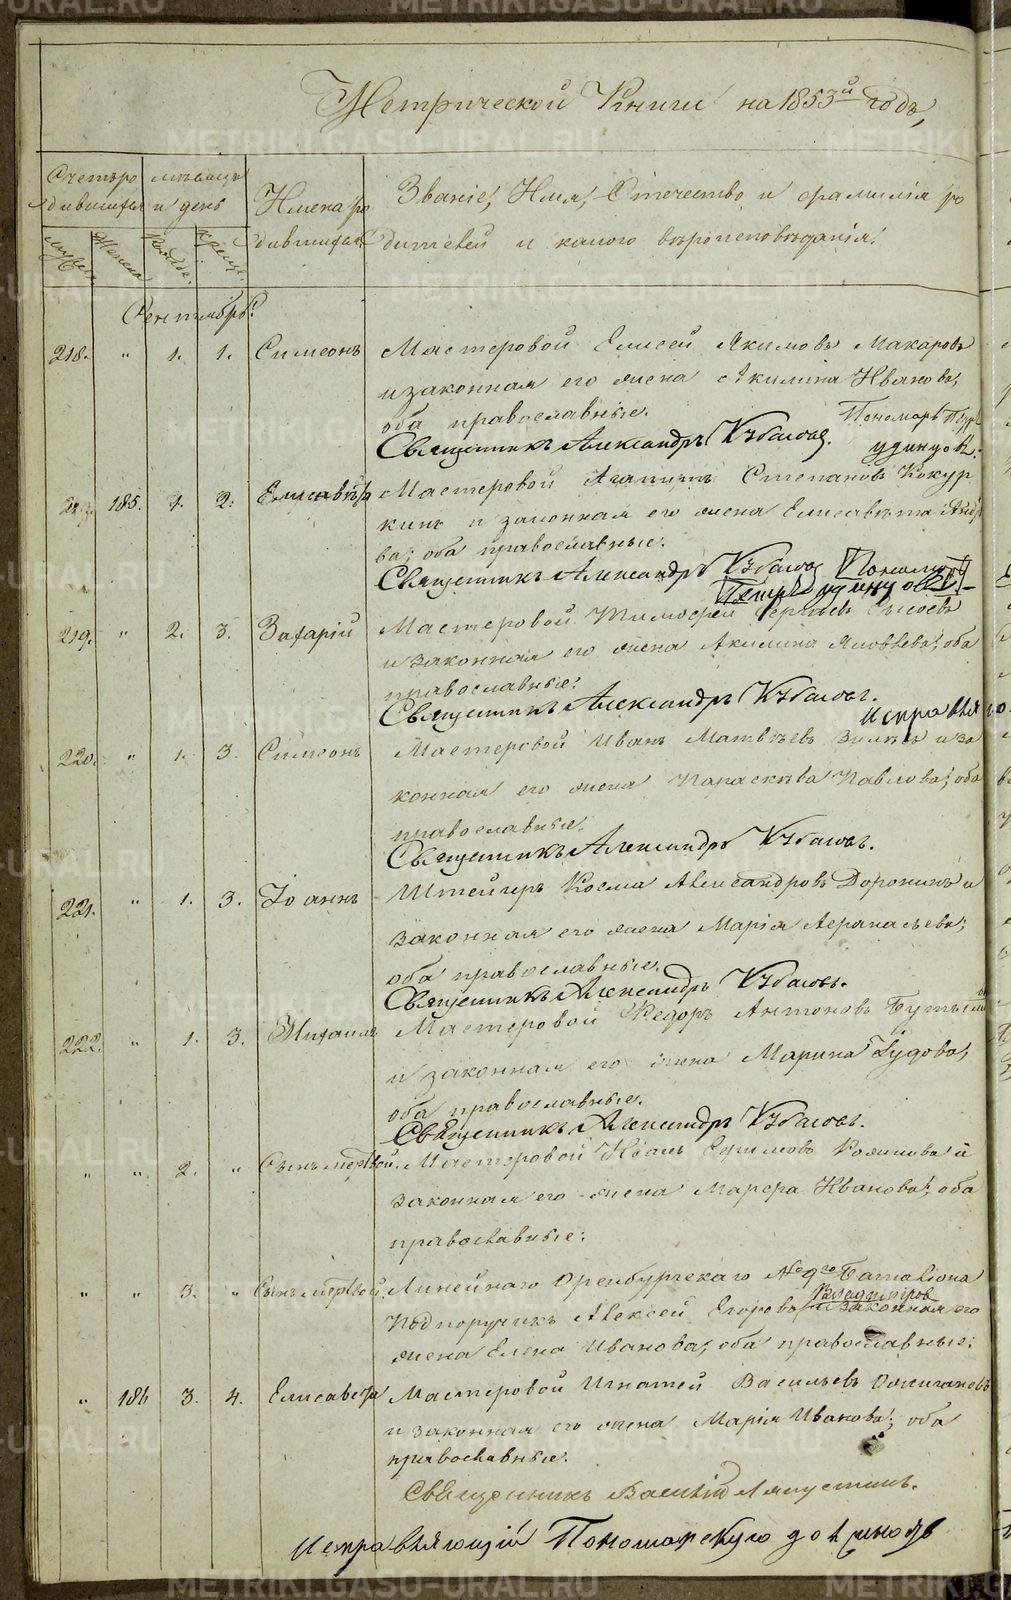 Метрической Книги на 1853й годъ,
Счетъ ро мѣсяцъ
дившихся и день
Имена ро
дившихся
Званіе, Имя, Отечество и фамилія ро
дителей и какого вѣроисповѣданія.
Мужеск. Женска Рожден. Крещ.
Сентябрь.
218. " 1. 1. Симеонъ Мастеровой Елисей Якимовъ Макаровъ
и законная его жена Акилина Иванова,
оба православные. Пономарь Петръ
Священникъ Александръ Кубасовъ. Удинцовъ.
185. 1. 2. Елисавета Мастеровой Агапитъ Степановъ Кокур
кинъ и законная его жена Елисавета
ва; оба православные.
Священникъ Александръ Кубасовъ Пономарь
Петръ Удинцовъ
219. " 2. 3. Захарій Мастеровой Тимофей Сергѣевъ Сысоевъ
и законная его жена Акилина Яковлева; оба
православные.
Священникъ Александръ Кубасовъ.
Исправляю
220. " 1. 3. Симеонъ Мастеровой Иванъ Матвѣевъ и за
конная его жена Параскѣва Павлова; оба
православные.
Священникъ Александръ Кубасовъ.
221. " 1. 3. Іоаннъ Штейгеръ Косма Александровъ Доронинъ и
законная его жена Марія Аѳанасьева;
оба православные.
Священникъ Александръ Кубасовъ.
222. " 1. 3. Михаилъ Мастеровой Ѳедоръ Антоновъ
и законная его жена Марина Іудова,
оба православные.
Священникъ Александръ Кубасовъ.
" " 2. " Сынъ мертвой. Мастеровой Иванъ Ефимовъ и
законная его жена Марѳа Иванова; оба
православные.
" " 3. " Сынъ мертвой. Линейнаго Оренбургскаго № 9го Баталіона
Подпоручикъ Алексей Егоровъ и законная его
жена Елена Иванова; оба православные.
" 186 3. 4. Елисавета Мастеровой Игнатей Васильевъ
и законная его жена Марія Иванова; оба
православные.
Священникъ Василій Ляпустинъ.
Исправляющій Пономарскую должность
METRIKI.GASO-URAL.RU